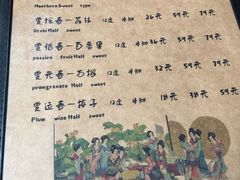 Northern Sweet type
贾拉春一荔枝 12度 半甜 26元 59元 39元
litchi Half sweet
贾恬春一百香果 12度 半甜 36元 59元 39元
passion fruit Half sweet
贾元春一石榴 12度 半甜 32元 59元 39元
pomegranate Half sweet
贾运春一梅子 12度 半甜 18元 58元 38元
Plum wine Half sweet